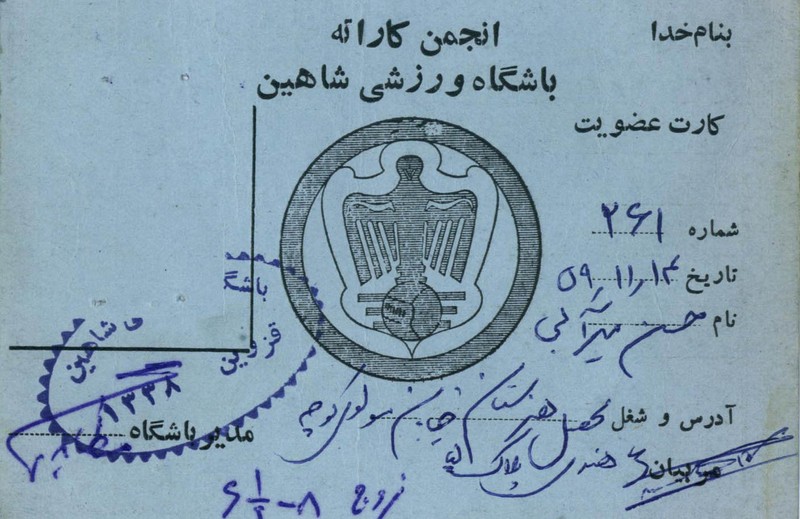 بنام خدا
انجمن کاراته
باشگاه ورزشی شاهین
کارت عضویت
شماره ۲۶۱
تاریخ ۵۹,۱۱,۱۴
نام حسن میرآ
آدرس و شغل محصل هنرستان خیابان مولوی کوچه
هندی پلاک
مربیان
مدیر باشگاه
باشگاه شاهین
قزوین
۱۳۳۸